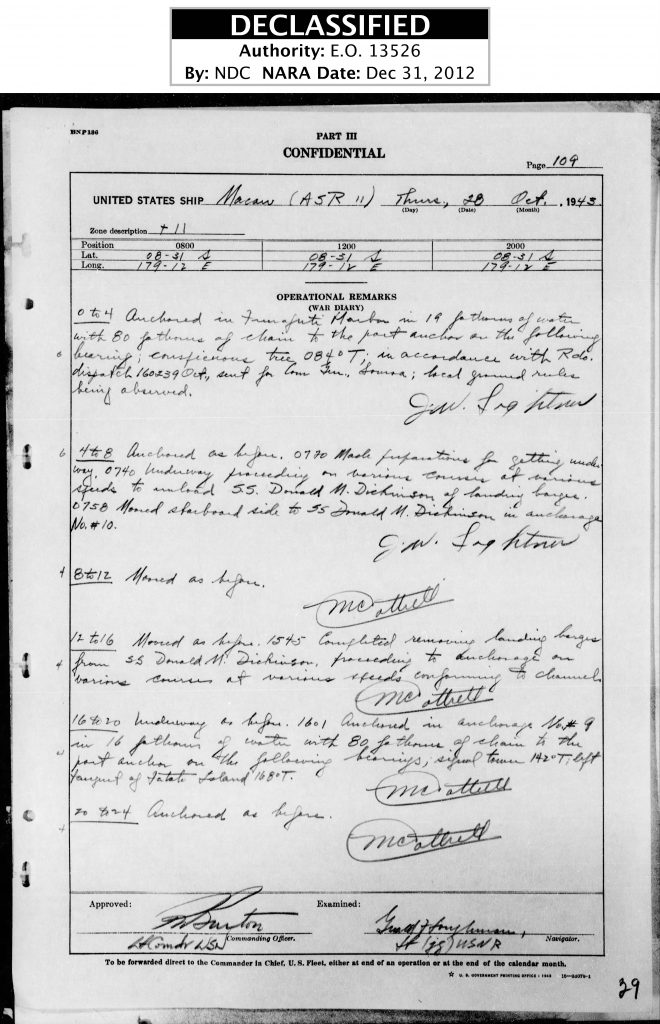 DECLASSIFIED
Authority: E.O. 13526
By: NDC NARA Date: Dec 31, 2012
PART III
CONFIDENTIAL
Page 109
UNITED STATES SHIP Macaw (ASR 11) Thurs, 28 Oct, 1943
(Day) (Date) (Month)
Zone description + 11
Position 0800 1200 2000
Lat. 08-31 S 08-31 S 08-31 S
Long. 179-12 E 179-12 E 179-12 E
OPERATIONAL REMARKS
(WAR DIARY)
0 to 4 Anchored in Funafuti Harbor in 19 fathoms of water
with 80 fathoms of chain to the port anchor on the following
bearing; conspicious tree 084° T; in accordance with Rdo.
dispatch 160239 Oct, sent for Com Gen, Samoa; local ground rules
being observed.
J.W.
4 to 8 Anchored as before. Made preparations for getting under
way. 0740 Underway proceeding on various courses at various
speeds to unload SS. Donald M. Dickinson of landing barges.
0758 Moored starboard side to SS Donald M. Dickinson in anchorage
No. #10.
J.W.
8 to 12 Moored as before.
McCottrell
12 to 16 Moored as before. 1545 Completed removing landing barges
from SS Donald M. Dickinson, proceeding to anchorage on
various courses at various speeds conforming to channel.
McCottrell
16 to 20 Underway as before. 1601 Anchored in anchorage No. # 9
in 16 fathoms of water with 80 fathoms of chain to the
port anchor on the following bearings; signal tower 142° T; left
tangent of Island 168° T.
McCottrell
20 to 24 Anchored as before.
McCottrell
Approved: Examined:
Burton
Lt Comdr USN Commanding Officer. Lt (jg) USNR Navigator.
To be forwarded direct to the Commander in Chief, U. S. Fleet, either at end of an operation or at the end of the calendar month.
☆ U. S. GOVERNMENT PRINTING OFFICE
39